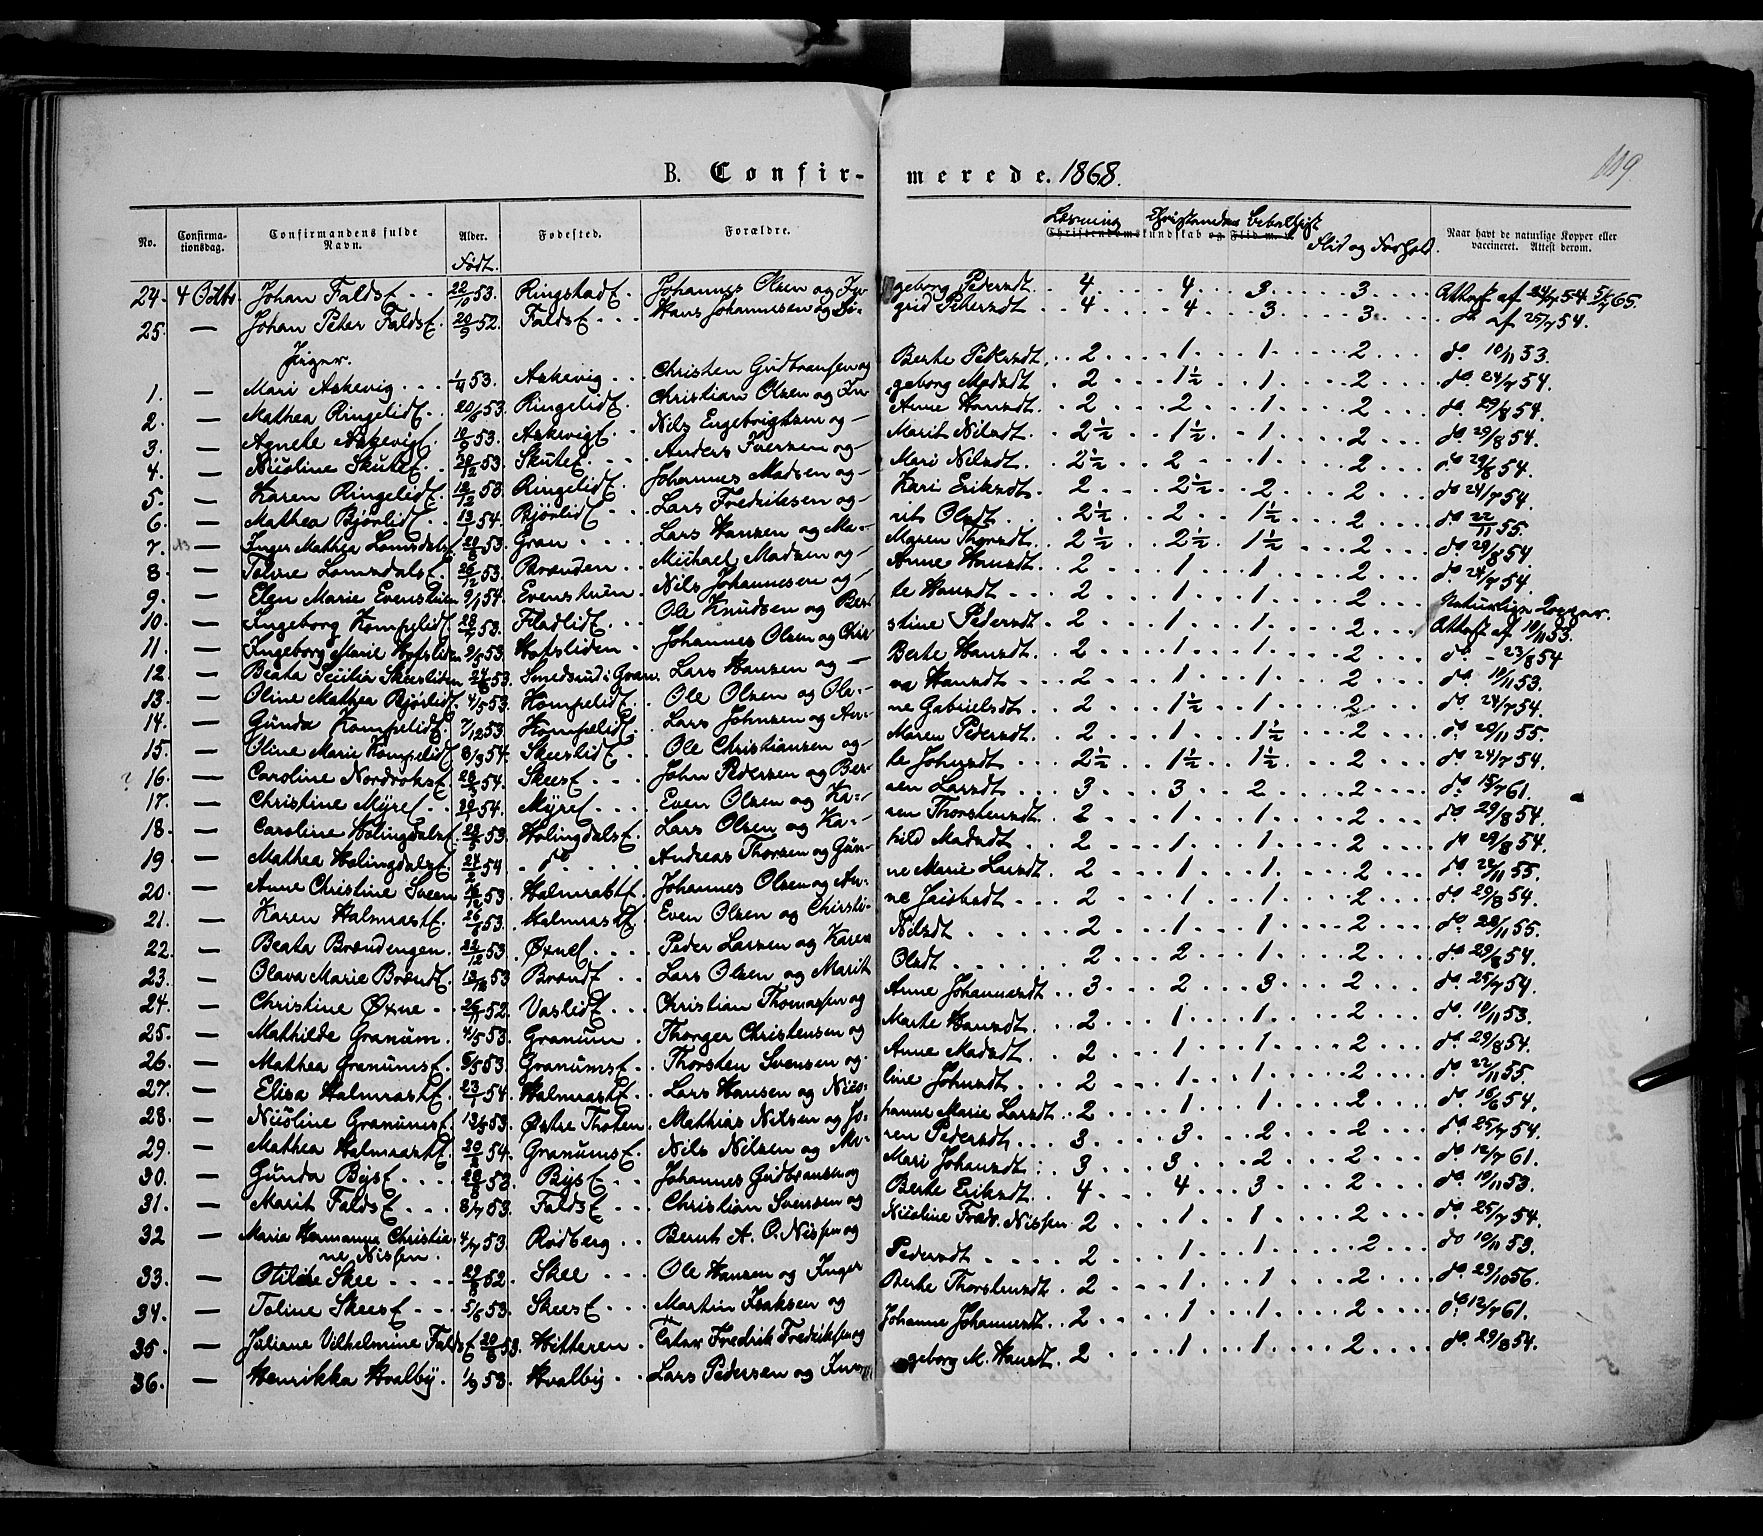 B. Confir- merede. 1868.
119.
No. Confirmationsdag. Confirmandens fulde Navn. Alder. Født. Fødested. Forældre. Læsning Christendom Flid og Forhold. Christendomskundskab og Flid m. v. Naar havt de naturlige Kopper eller vaccineret. Attest derom.
24. 4 Octbr. Johan Faldsf 22/10 53. Ringstadf. Johannes Olsen og Ingeborg Pedersdt 4 4 3 3 Attest af 24/7 54 65.
25. — Johan Peter Faldsf. 20/9 52. Faldsf. Hans Johannesen og Sigrid Petersdt 4 4 3 3 do af 25/7 54.
Piger.
1. — Mari Askevig 1/4 53. Askevig Christen Gudbransen og Berte Petersdt. 2 1 1 2 do 10/11 53.
2. — Mathea Ringelidf. 20/6 53. Ringelidf. Christian Olsen og Ingeborg Madsdt 2 1½ 1 2 do 24/7 54.
3. — Agnete Askevigf. 53. Askevigf. Nils Engebrigtsen og Anne Hansdt. 2 2 1 2 do 29/8 54.
4. — Nicoline Skutef. 53. Skutef. Anders Iversen og Marit Nilsdt. 2½ 1½ 1 2 do 29/8 54.
5. — Karen Ringelidf. 53. Ringelidf. Johannes Madsen og Mari Nilsdt. 2½ 2 1 2 do 54.
6. — Mathea Bjørlidf. 54. Bjørlidf. Lars Fredriksen og Kari Eriksdt. 2 2½ 2 2 do 24/7 54.
7. — Inger Mathea Lomsdalsf. 53. Gran Lars Hansen og Marit Olsdt. 2½ 2 1½ 2 do 22/11 55.
8. — Toline Lomsdalsf. 53. Brænden Michael Madsen og Maren Thorsdt. 2½ 2½ 1½ 2 do 29/8 54.
9. — Elen Marie Evenstuen 9/1 54. Evenstuen Nils Johannesen og Anne Hansdt. 2 1 1 2 do 24/7 54.
10. — Ingeborg Kompelidf. 53. Fladlidf. Ole Knudsen og Berte Hansdt. 2 1 1 2 Naturlige Kopper.
11. — Ingeborg Marie Hofsliden 53. Hofsliden Johannes Olsen og Christine Pedersdt. 2 1 1 2 Attest af 10/11 53.
12. — Beata Cecilia Skeesliden 53. Smedsrud i Gran Lars Hansen og Berte Hansdt. 2 1 1 2 do - 23/8 54
13. — Oline Mathea Bjørlidf. 4/5 53. Kompelidf. Ole Olsen og Olava Hansdt. 2 1 1 2 do 10/11 53.
14. — Gunda Kompelidf. 7/12 53. Kompelidf. Lars Johnsen og Anne Gabrielsdt. 2 1½ 1 2 do 24/7 54.
15. — Oline Marie Kompelidf. 8/3 54. Skeeslidf. Ole Christiansen og Maren Pedersdt. 2 1 1½ 2 do 55.
? 16. — Caroline Nordroksf. 54. Skeesf. John Pedersen og Berte Johnsdt. 2½ 1½ 1½ 2 do 24/7 54.
17. — Christine Myref. 54. Myref. Even Olsen og Karen Larsdt. 3 3 2 2 do 61.
18. — Caroline Helingdalsf. 53. Helingdalsf. Lars Olsen og Karen Thorstensdt. 2 1 1 2 do 29/8 54.
19. — Mathea Helingdalsf. 54. do Andreas Thorsen og Gunhild Madsdt. 2 1 1 2 do 29/8 54.
20. — Anne Christine Sveen 53. Halmrastf. Johannes Olsen og Anne Marie Larsdt. 2 1 1 2 do 22/11 55.
21. — Karen Halmrastf. 53. Halmrastf. Even Olsen og Christine 2 1 1 2 do 29/8 54.
22. — Beata Brændengen 22/12 53. Øxnef. Peder Larsen og Karen Nilsdt. 2 1 1 2 do 55.
23. — Olava Marie Brændf. 53. Brændf. Lars Olsen og Marit Olsdt. 2 2 1 2 do 29/8 54.
24. — Christine Øxne 52. Vaslidf. Christian Thomassen og Anne Johannesdt 3 2 3 2 do 25/7 54.
25. — Mathilde Granum. 4/5 53. Granum Thorger Christensen og Marte Hansdt. 2 1 1 2 do 10/11 53.
26. — Mathea Granumsf. 53. Granumsf. Thorsten Svensen og Anne Madsdt. 2 1 1 2 do 29/8 54.
27. — Elisa Halmrastf. 23/1 54. Halmrastf. Lars Hansen og Nicoline Johnsdt. 2 1 1 2 do 22/11 55.
28. — Nicoline Granumsf. 53. Østre Thoten. Mathias Nilsen og Johanne Marie Larsdt. 2 1 1 2 do 54.
29. — Mathea Halmrastf. 54. Granumsf. Nils Nilsen og Maren Pedersdt. 3 3 2 2 do 25/7 54.
30. — Gunda Bysf. 53. Bysf. Johannes Gudbransen og Mari Johansdt. 3 3 2 2 do 12/7 61.
31. — Marit Faldsf. 8/7 53. Faldsf. Christian Svensen og Berte Eriksdt. 4 4 3 2 do 10/11 53.
32 — Maria Hermanna Christiane Nissen. 4/7 53. Rodberg Bernt A. O. Nissen og Nicoline Fred. Nissen 2 1 1 2 do 25/7 54.
33. — Otilde Skee 52. Skee Ole Hansen og Inger Pedersdt 2 1 1 2 do 10/11 53.
34. — Toline Skeesf. 5/6 53. Skeesf. Martin Isaksen og Berte Thorstensdt 2 1 1 2 do 29/10 56.
35. — Juliane Vilhelmine Faldsf. 20/6 53. Hitteren. Tatar Fredrik Fredriksen og Johanne Johannesdt 2 1 1 2 do 12/7 61.
36. — Henrikka Hvalby. 1/9 53. Hvalby Lars Pedersen og Ingeborg M. Hansdt. 2 1 1 2 do 29/8 54.